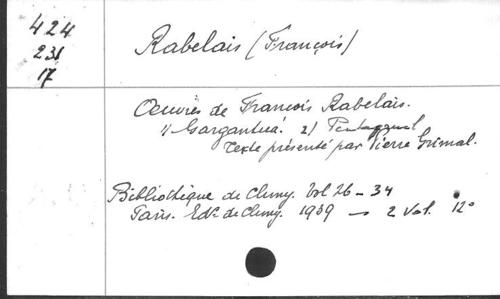 424
231
17
Rabelais (François)
Œuvres de François Rabelais.
1/ Gargantua. 2/ Pentagruel
Texte présenté par Pierre Grimal.
Bibliothèque de Cluny. Vol 26 - 34
Paris. Edns de Cluny. 1939 — 2 Vol. 12°